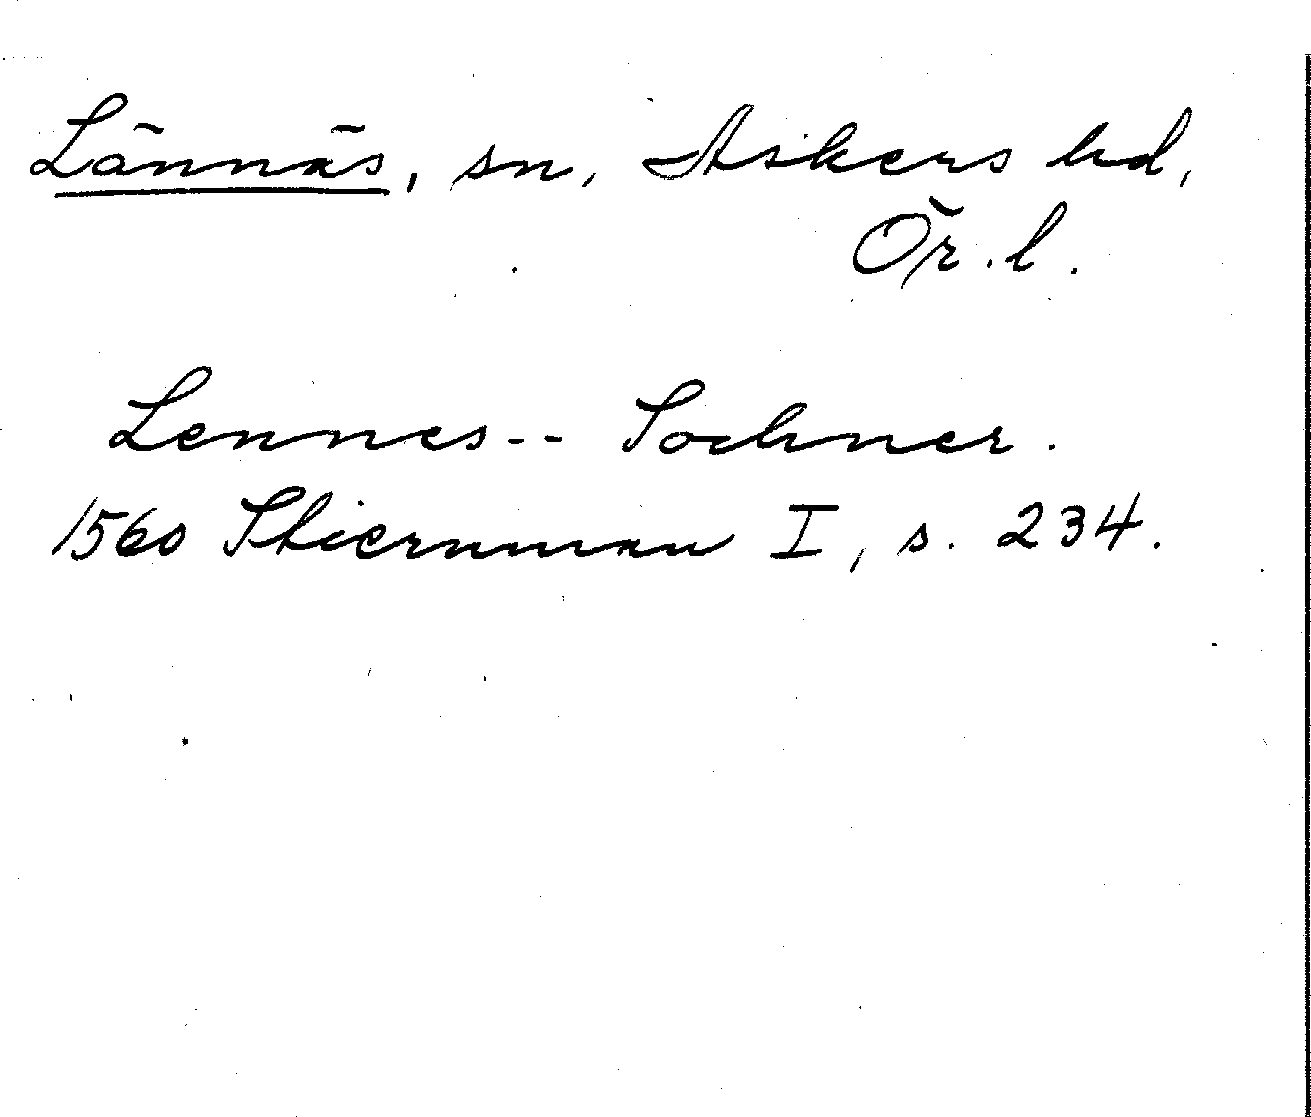 Lännäs, sn, Askers hd,
Ör. l.
Lennes-- Sochner.
1560 Stiernman I, s. 234.